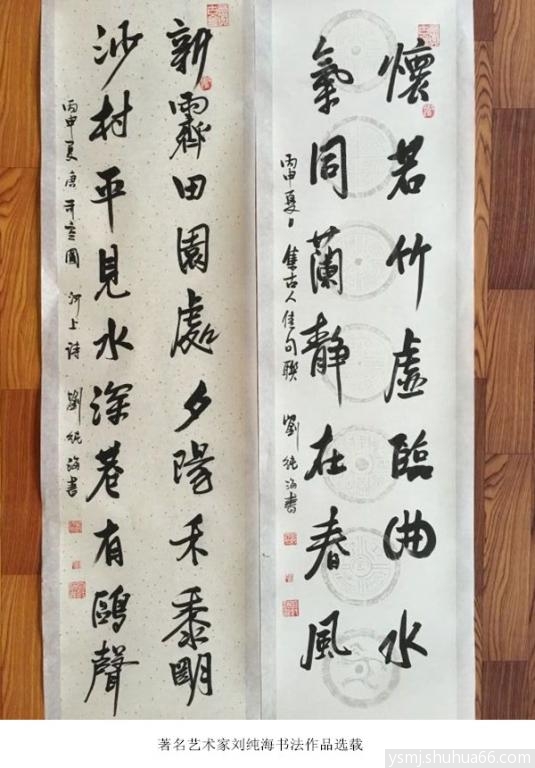 懷若竹虛臨曲水
氣同蘭靜在春風
丙申夏日集古人佳句聯 劉純海書
新霽田園處夕陽禾黍明
沙村平見水深巷有鷗聲
丙申夏唐司空圖河上詩 劉純海書
著名艺术家刘纯海书法作品选载
ysmj.shuhua66.com